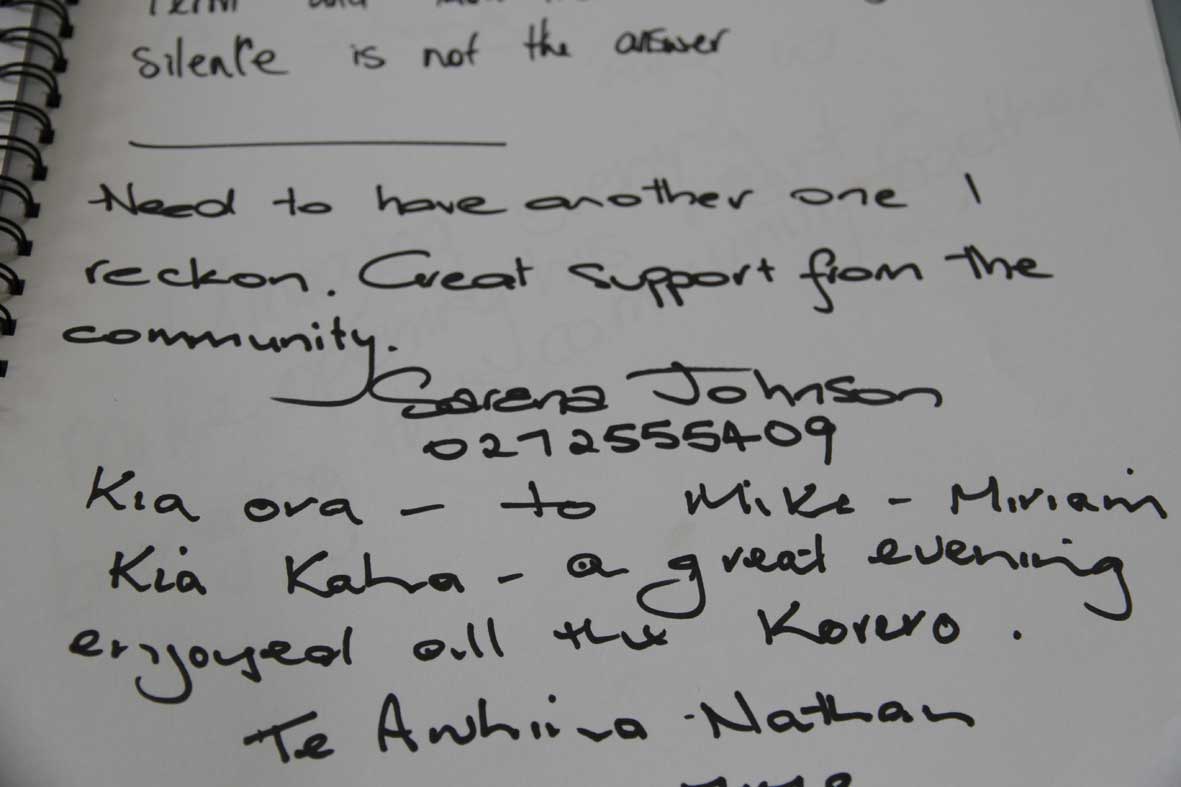 silence is not the answer
Need to have another one I
reckon. Great support from the
community.
Sarena Johnson
0272555409
Kia ora - to Mike - Miriam
Kia Kaha - a great evening
enjoyed all the Korero.
Te -Nathan